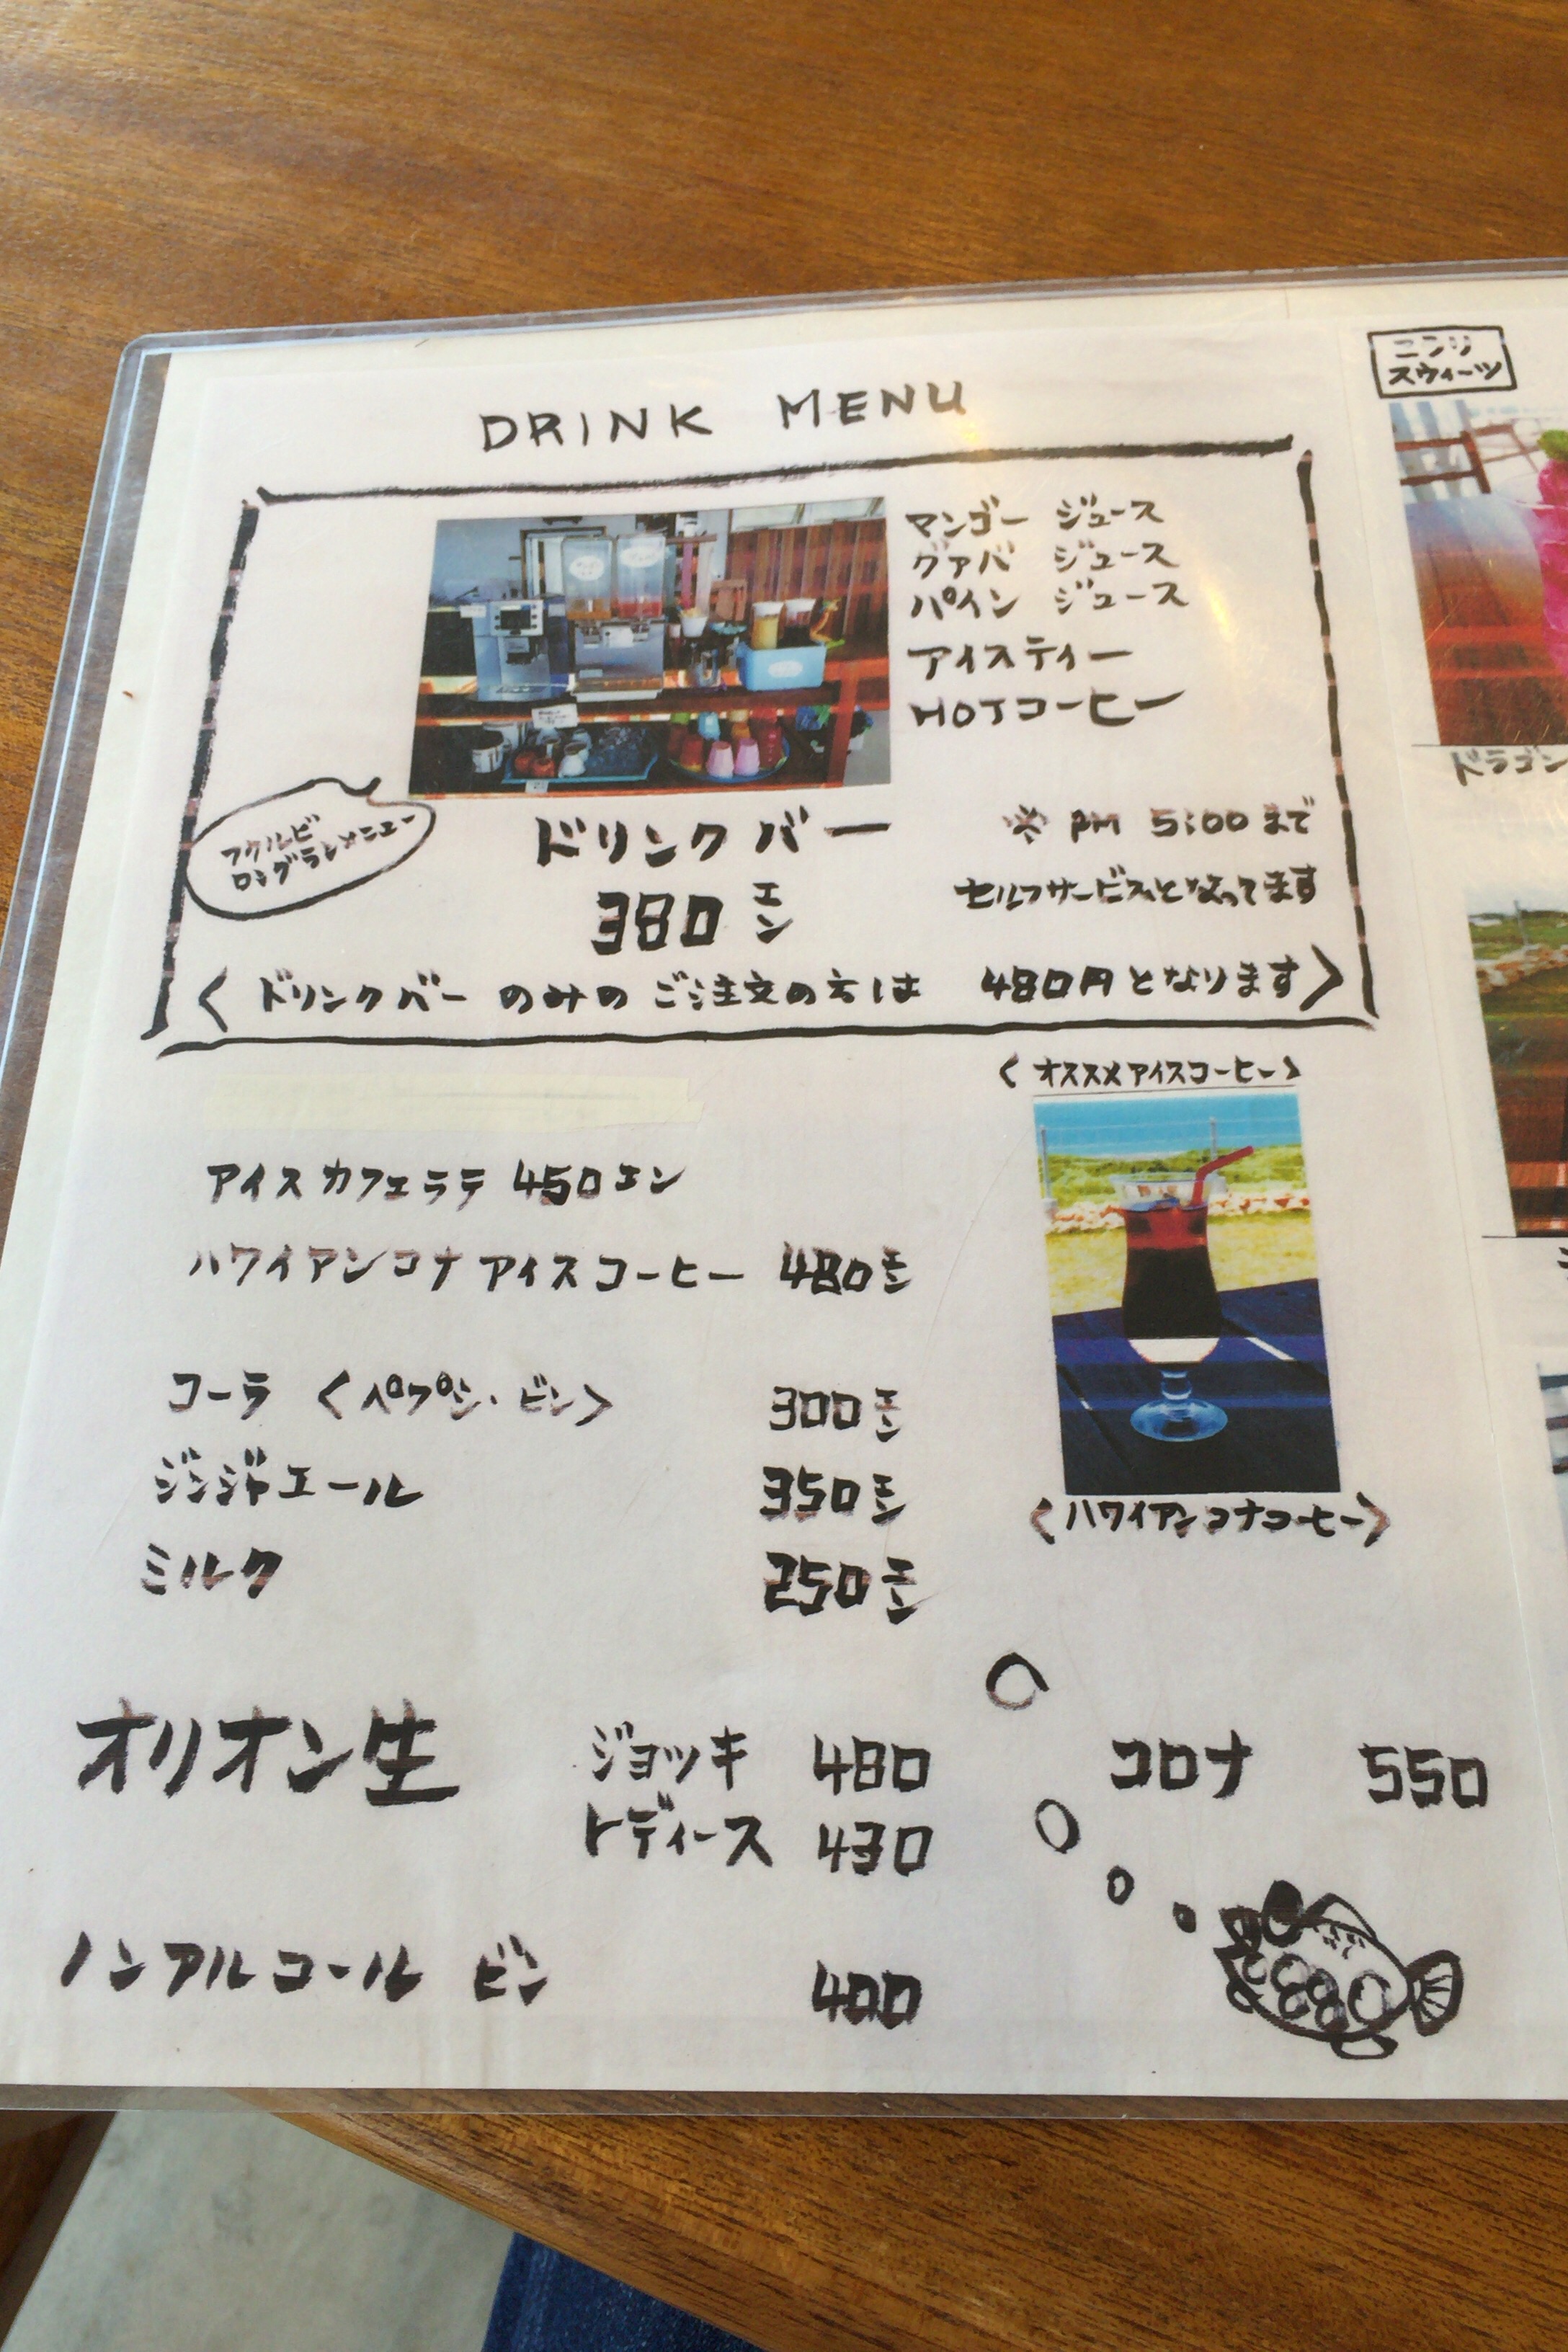 DRINK MENU
マンゴー ジュース
グァバ ジュース
パイン ジュース
アイスティー
HOTコーヒー
フクルビ
ロングランメニュー
ドリンクバー
380エン
※ PM 5:00まで
セルフサービスとなってます
〈ドリンクバーのみのご注文の方は 480円となります〉
〈オススメアイスコーヒー〉
アイスカフェラテ 450エン
ハワイアンコナアイスコーヒー 480エン
コーラ 〈ペプシ・ビン〉 300エン
ジンジャエール 350エン
ミルク 250エン
〈ハワイアンコナコーヒー〉
オリオン生 ジョッキ 480
トディース 430
コロナ 550
ノンアルコール ビン 400
ニンリ
スウィーツ
ドラゴン